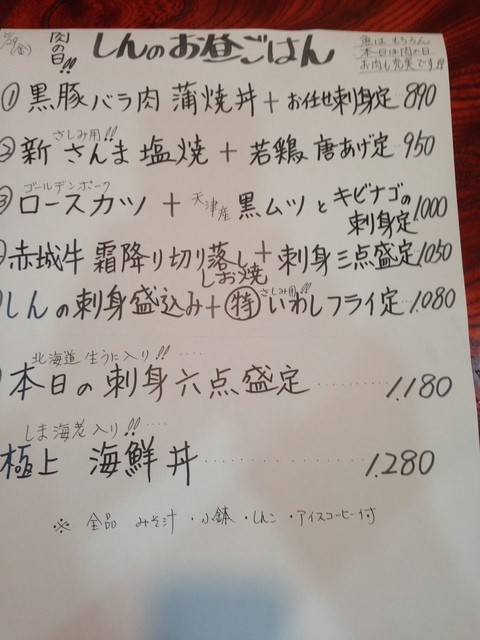 5/29(金)
肉の日!!
しんのお昼ごはん
魚はもちろん
本日は肉の日
お肉も充実です!!
① 黒豚バラ肉 蒲焼丼 + お任せ刺身定 890
さしみ用!!
② 新 さんま 塩焼 + 若鶏 唐あげ定 950
ゴールデンポーク
③ ロースカツ + 天津産 黒ムツ と キビナゴの刺身定 1,000
赤城牛 霜降り切り落し しお焼 + 刺身三点盛定 1,050
さしみ用!!
しんの刺身盛込み + 特 いわしフライ定 1,080
北海道 生うに入り!!
本日の刺身六点盛定 ......... 1,180
しま海老入り!!
極上 海鮮丼 ......... 1,280
※ 全品 みそ汁・小鉢・しんこ・アイスコーヒー付